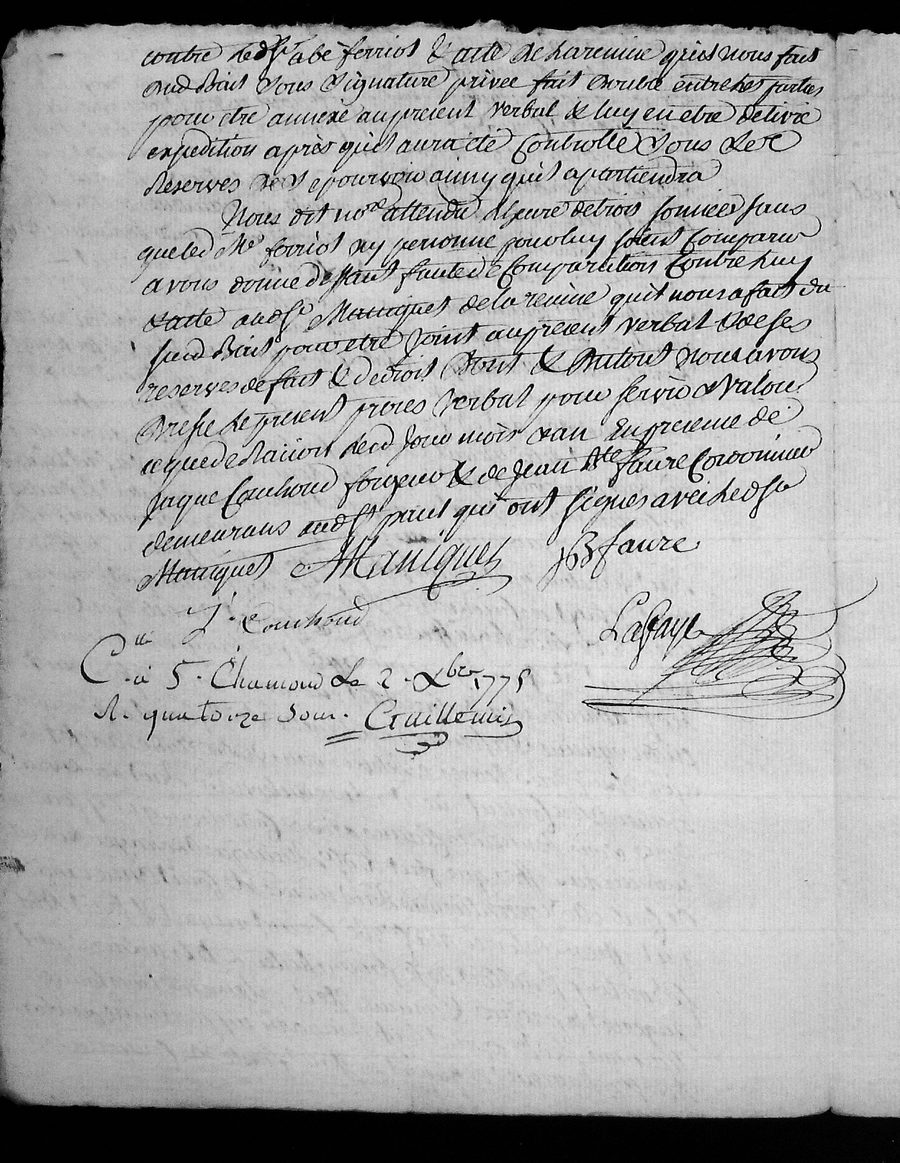 contre led. Sr abé ferriol & acte de la remise quil nous fait
dud. Bail sous signature privée fait double entre les parties
pour etre annexé au present verbal & luy en etre delivré
expedition après quil aura eté Controllé sous les
Reserves de se pourvoir ainsy quil apartiendra
Nous dit nore attendu lheure de trois sonnée sans
que led. Mre ferriol ny personne pour luy soint Comparu
avons donné deffaut faute de Comparution Contre luy
& acte aud. Sr Maniquet de la remise quil nous a fait du
sud. Bail pour etre Joint au present verbal & de ses
reserves de fait & de droit Dont & du tout nous avons
Dressé le present proces verbal pour servir & valoir
ce que de Raison led. Jour mois & an En presence de
Jaque Couchoud & de Jean Bte faure Cordonnier
demeurans aud. St paul qui ont signés avec led. Sr
Maniquet Maniquet JB faure
J. Couchoud
Lafaye
Clle à St. Chamond Le 2. Xbre 1775
R. quatorze Sous.